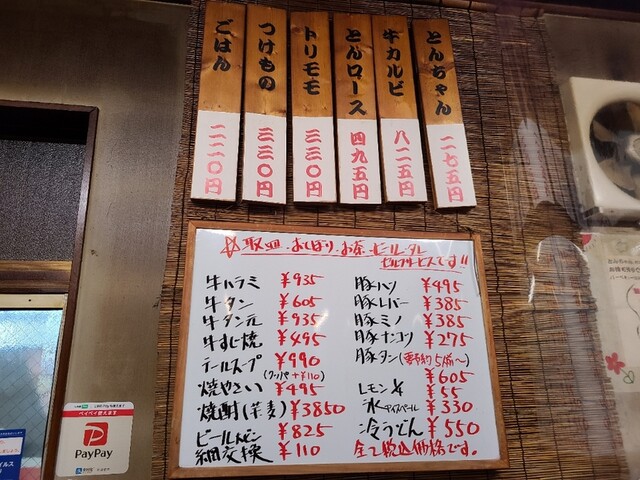 とんちゃん 二七五円
牛カルビ 八二五円
とんロース 四九五円
トリモモ 三三〇円
つけもの 三三〇円
ごはん 二二〇円
☆取皿・おしぼり・お茶・ビール・タレ
セルフサービスです!!
牛ハラミ ¥935
牛タン ¥605
牛タン元 ¥935
牛すじ焼 ¥495
テールスープ ¥990
(クッパ+¥110)
焼やさい ¥495
焼酎(芋麦) ¥3850
ビール大ビン ¥825
網交換 ¥110
豚ハツ ¥495
豚レバー ¥385
豚ミノ ¥385
豚ナンコツ ¥275
豚タン(要予約5人前〜)
¥605
レモン ¥55
氷アイスペール ¥330
冷うどん ¥550
全て税込価格です。
ペイペイ使えます
PayPay